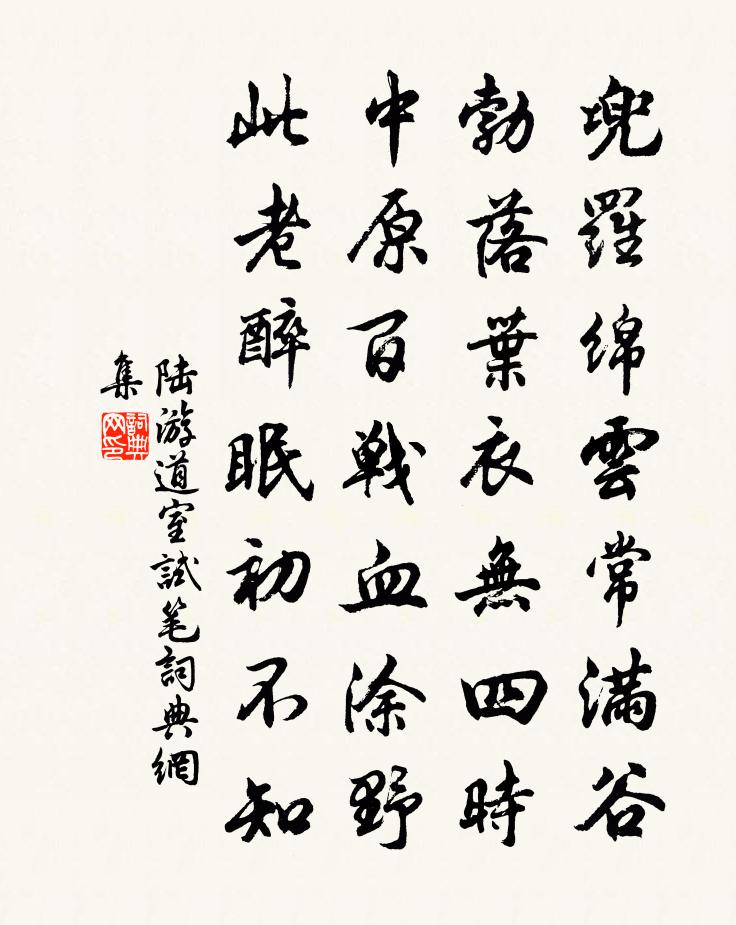 兜羅綿雲常滿谷
勃落葉衣無四時
中原百戰血涂野
此老醉眠初不知
陸游道室試笔詞典網
集
詞典
网印